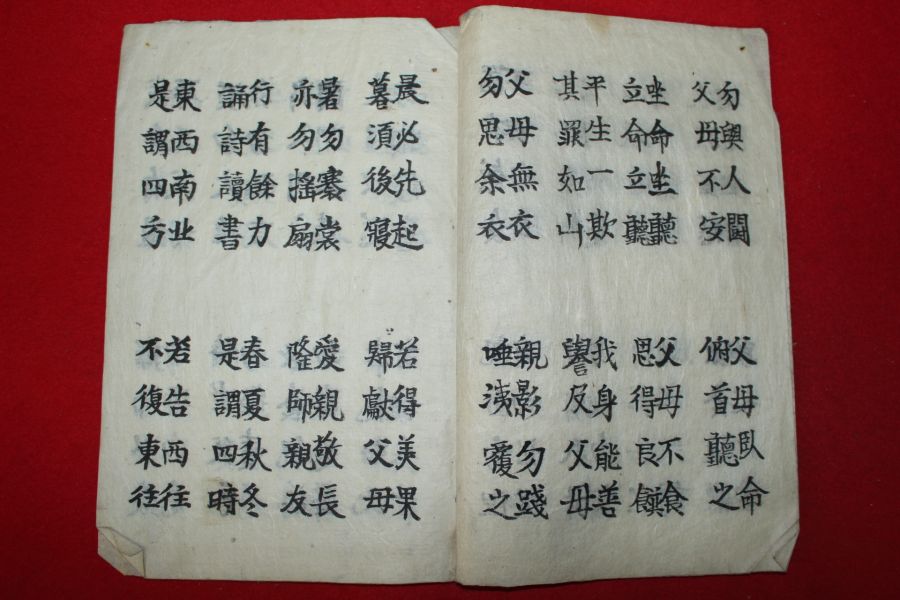 勿與人鬪
父母不安
父母臥命
俯首聽之
坐命坐聽
立命立聽
父母不食
思得良饌
平生一欺
其罪如山
我身能善
譽及父母
父母無衣
勿思余衣
親影勿踐
唾洟覆之
晨必先起
暮須後寢
若得美果
歸獻父母
暑勿褰裳
亦勿搖扇
愛親敬長
隆師親友
行有餘力
誦詩讀書
春夏秋冬
是謂四時
東西南北
是謂四方
若告西往
不復東往